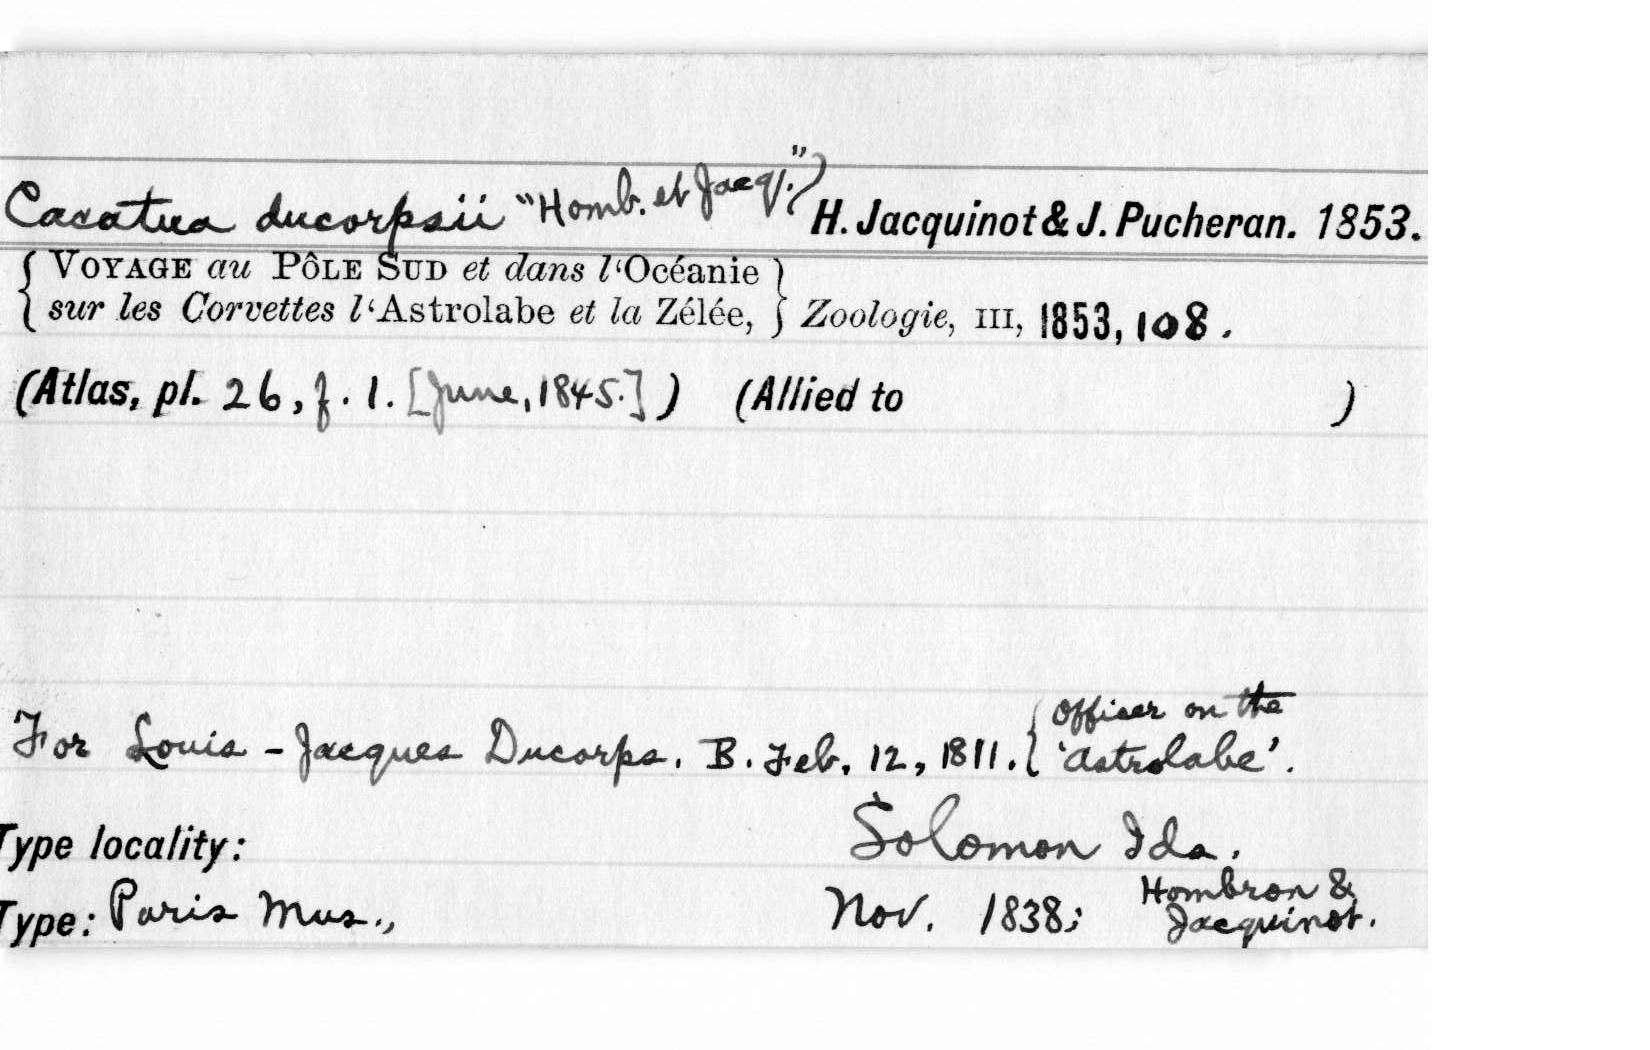 Cacatua ducorpsii "Homb. et Jacq.") H. Jacquinot & J. Pucheran. 1853.
{ VOYAGE au PÔLE SUD et dans l‘Océanie }
{ sur les Corvettes l‘Astrolabe et la Zélée, } Zoologie, III, 1853, 108.
(Atlas, pl. 26, f. 1. [June, 1845.] ) (Allied to )
For Louis-Jacques Ducorps. B. Feb. 12, 1811. { Officer on the
'Astrolabe'.
Type locality: Solomon Ids.
Type: Paris Mus., Nov. 1838; Hombron &
Jacquinot.